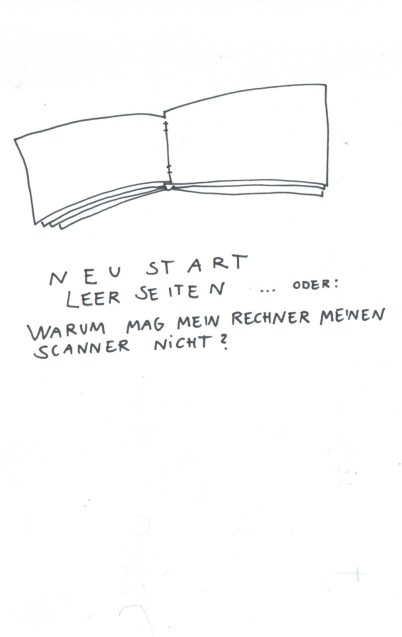 NEU START
LEER SEITEN ... ODER:
WARUM MAG MEIN RECHNER MEINEN
SCANNER NICHT?